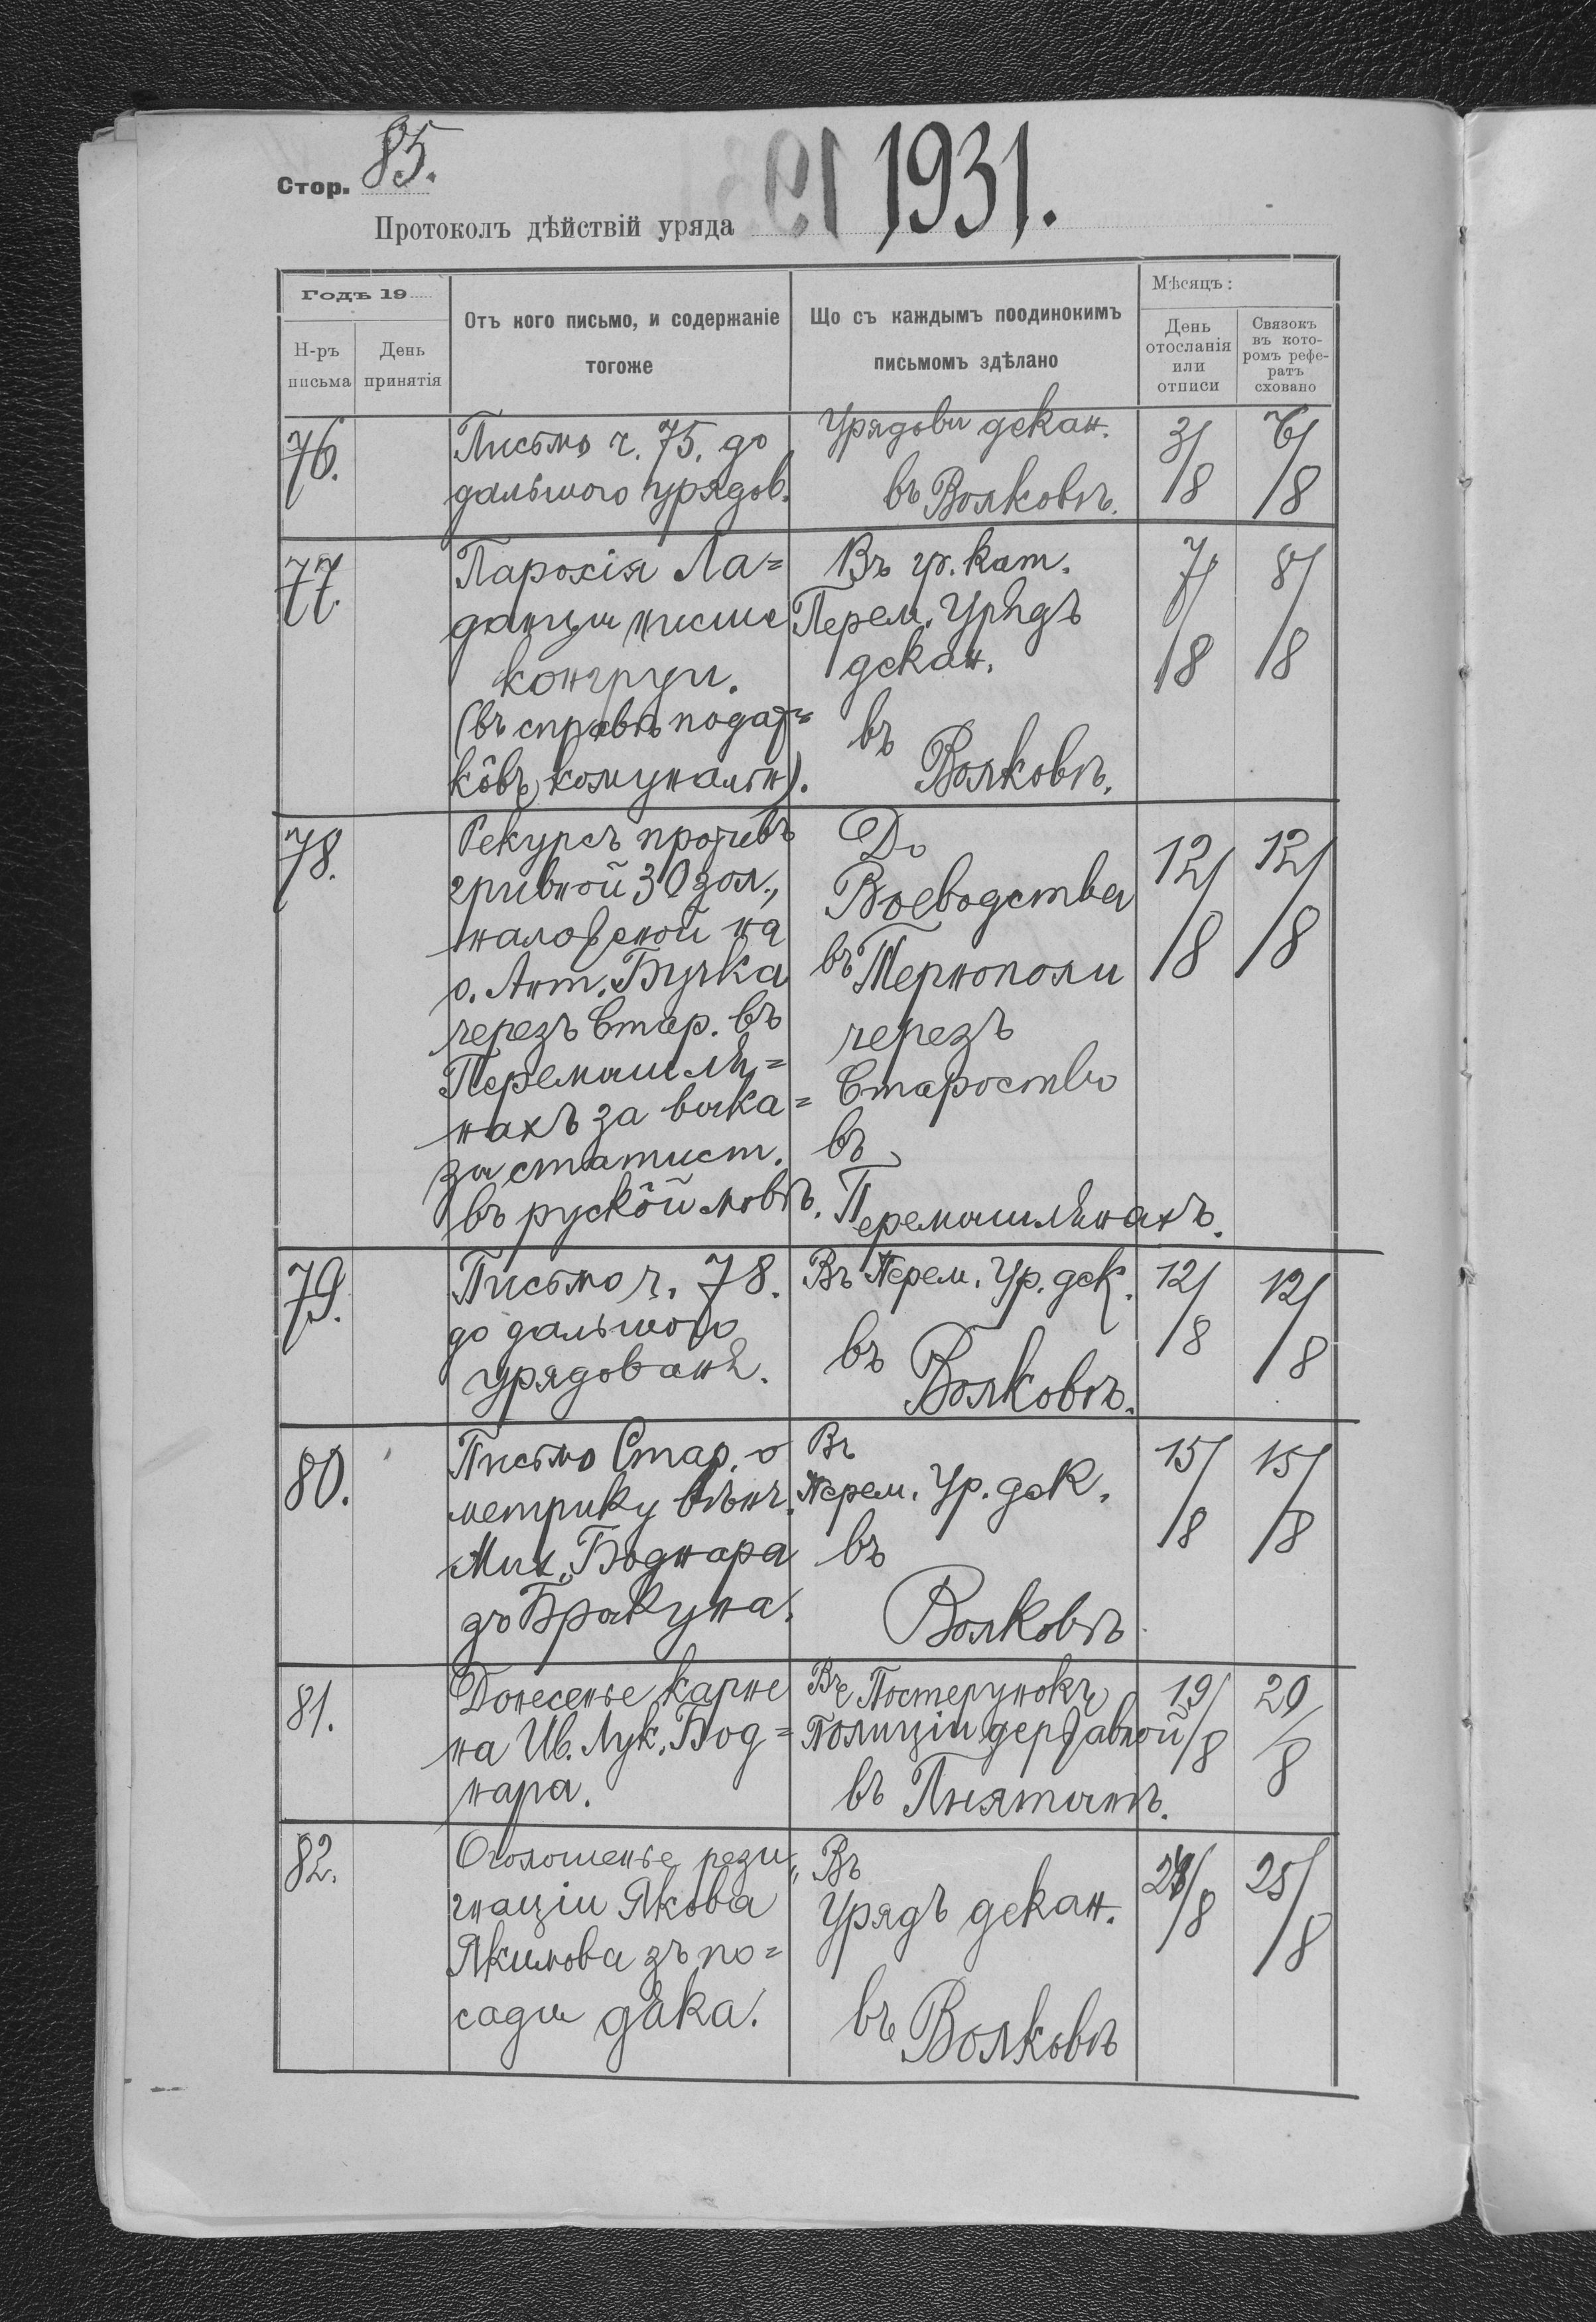 Стор. 85.
1931.
Протоколъ дѣйствій уряда
Годъ 19
Н-ръ письма
День принятія
Отъ кого письмо, и содержаніе
тогоже
Що съ каждымъ поодинокимъ
письмомъ здѣлано
Мѣсяцъ:
День
отосланія
или
отписи
Связокъ
въ кото-
ромъ рефе-
ратъ
сховано
76.
Письмо ч. 75. до
дальшого урядов.
Урядови декан.
въ Волковѣ.
3/8
6/8
77.
Парохія Ла=
данци
конгруи.
(въ справѣ подат=
кôвъ комунальн).
Въ гр. кат.
Перем. Урядъ
декан.
въ
Волковѣ.
7/8
8/8
78.
Рекурсъ противъ
гривной 30 зол.,
наложеной на
о. Ант. Бучка
черезъ Стар. въ
Перемышля=
нахъ за выка=
зы статист.
въ рускôй мовѣ.
До
Воеводства
въ Тернополи
черезъ
Староство
въ
Перемышлянахъ.
12/8
12/8
79.
Письмо ч. 78.
до дальшого
урядованя.
Въ Перем. Ур. дек.
въ
Волковѣ.
12/8
12/8
80.
Письмо Стар. о
метрику вѣнч.
Мих. Боднара
зъ Бракуна.
Въ
Перем. Ур. дек.
въ
Волковѣ
15/8
15/8
81.
Донесенье карне
на Ив. Лук. Бод=
нара.
Въ Постерунокъ
Полиціи державной
въ Пнятынѣ.
19/8
20/8
82.
Оголошенье рези„
гнаціи Якова
Якимова зъ по=
сады дяка.
Въ
Урядъ декан.
въ Волковѣ
25/8